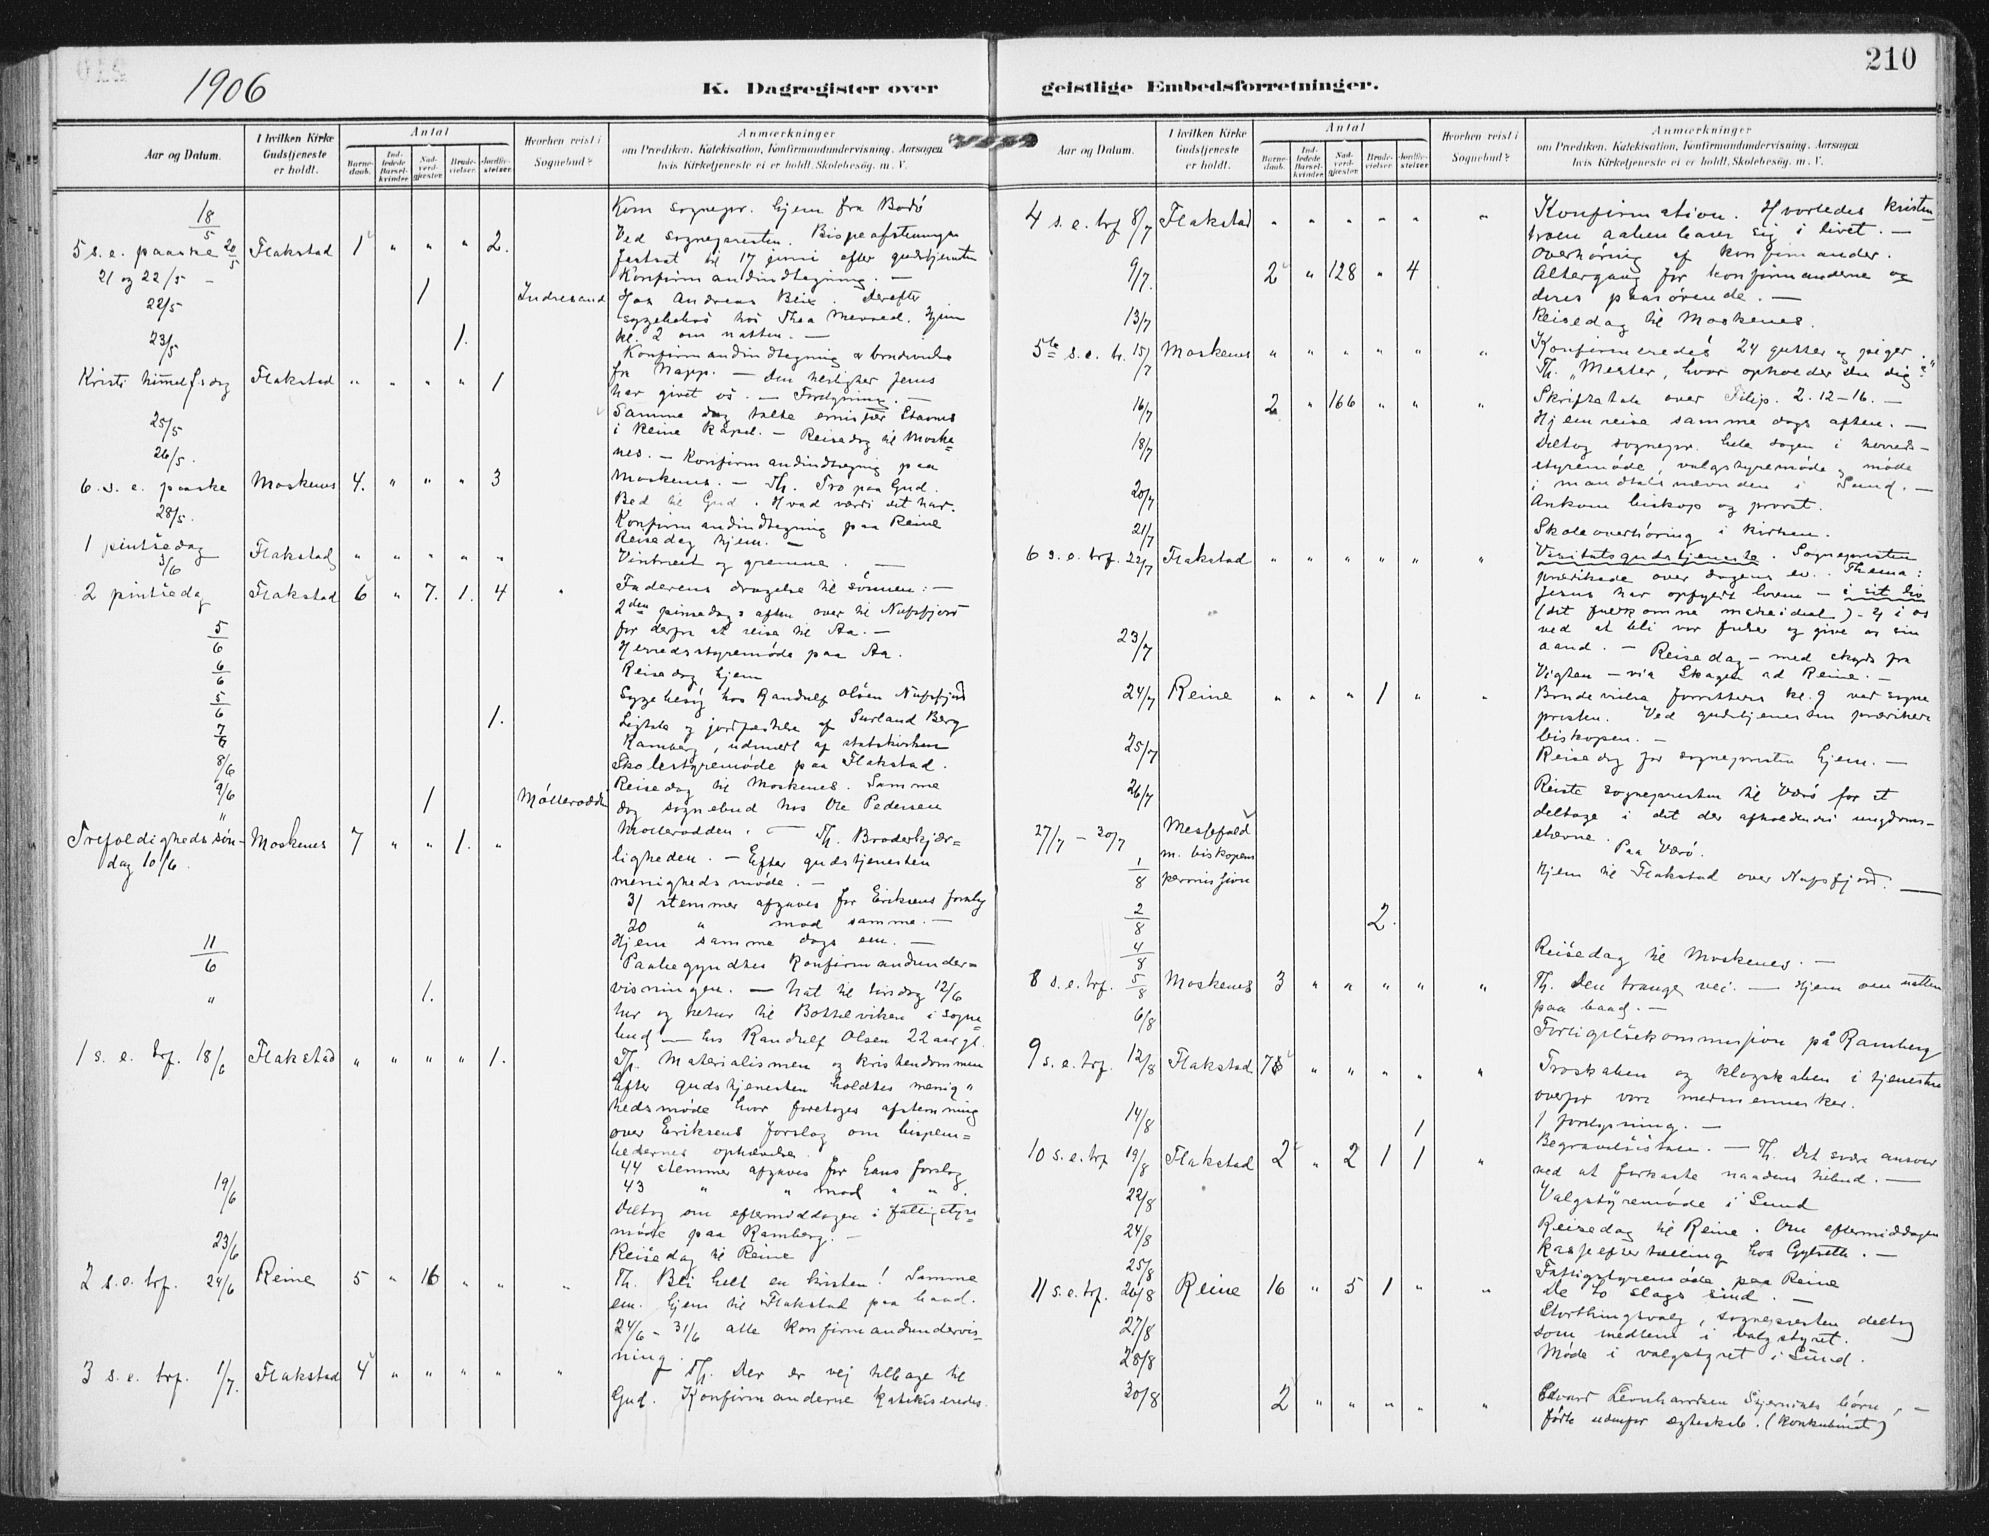 210
1906
K. Dagregister over geistlige Embedsforretninger.
Aar og Datum.
I hvilken Kirke Gudstjeneste er holdt.
Antal
Barnedaab.
Indledede Barselkvinder.
Nadverdgjester.
Brudevielser.
Jordfæstelser.
Hvorhen reist i Sognebud?
Anmærkninger
om Prædiken, Katekisation, Konfirmandundervisning, Aarsagen
hvis Kirketjeneste ei er holdt, Skolebesøg, m. V.
18/5 Kom sognepr. hjem fra Bodø
5 s. e. paaske 20/5 Flakstad 1 " " " 2. Ved sognepresten. Bispeafstemningen
fastsat til 17 juni efter gudstjenesten
21 og 22/5 - Konfirmandindtegning. -
22/5 1 Indresand Hos Andreas Beix. Derefter
sygebesøg hos Thea Hjem
23/5 1. kl. 2 om natten. -
Konfirmandindtegning & brudevielse
Kristi himmelfsdag Flakstad " " " " 1 fra Napp. - Den herlighed Jesus
har givet os. - Fordypning. -
25/5 Samme dag talte
i Reine kapel. - Reisedag til Moske
26/5. nes. - Konfirmandindtegning paa
6. s. e. paaske Moskenes 4. " " " 3 Moskenes. - Th. Tro paa Gud.
Bed til Gud. Hvad værdi det har.
28/5. Konfirmandindtegning paa Reine
Reisedag hjem. -
1 pintsedag 3/6 Flakstad " " " " " Vintræet og grenene. -
2 pintsedag Flakstad 6 " 7. 1. 4 " Faderens dragelse til sønnen: -
2den pinsedags aften over til Nufsfjord
for derfra at reise til Aa. -
5/6 Herredsstyremøde paa Aa.
6/6 Reisedag hjem
5/6 Sygebesøg hos Randulf Olsen Nufsfjord
7/6 1. Ligtale og jordfæstelse af Surland Berg
Ramberg, udmeldt af statskirken
8/6 Skolestyremøde paa Flakstad.
9/6 Reisedag til Moskenes. Samme
" 1 Mølleroddn dag sognebud hos Ole Pedersen
Trefoldighedssøn- Moskenes 7 " " 1. " Mølleroddn. - Th. Broderkjær-
dag 10/6. ligheden. - Efter gudstjenesten
menighedsmøde. -
31 stemmer afgaves for Eriksens forslag
30 " mod samme. -
Hjem samme dags em. -
11/6 Paabegyndtes Konfirmandunder-
" 1. visningen. - Nat til tirsdag 12/6
tur og retur til Bottelviken i sogne-
bud - hos Randulf Olsen 22 aar gl.
1 s. e. trf. 18/6 Flakstad " " " " 1. Th. Materialismen og kristendommen
Efter gudstjenesten holdtes menig"
hedsmøde hvor foretoges afstemning
over Eriksens forslag om bispem=
bedernes ophævelse.
44 stemmer afgaves for hans forslag
43 " " mod " "
19/6 Deltog om eftermiddagen i fattigstyre
møde paa Ramberg. -
23/6 Reisedag til Reine
2 s. e. trf. 24/6 Reine 5 " 16 " " " Th. Bli helt en kristen! Samme
em. hjem til Flakstad paa baad.
24/6 - 31/6 alle Konfirmandundervis-
ning.
3 s. e. trf. 1/7. Flakstad 4 " " " " " Th. Der er vej tilbage til
Gud. Konfirmanderne katekiseredes.
Aar og Datum.
I hvilken Kirke Gudstjeneste er holdt.
Antal
Barnedaab.
Indledede Barselkvinder.
Nadverdgjester.
Brudevielser.
Jordfæstelser.
Hvorhen reist i Sognebud?
Anmærkninger
om Prædiken, Katekisation, Konfirmandundervisning, Aarsagen
hvis Kirketjeneste ei er holdt, Skolebesøg, m. V.
4 s. e. trf 8/7 Flakstad " " " " " " Konfirmation. Hvorledes kristen
troen aabenbarer sig i livet. -
Overhøring af konfirmander.
9/7. 2 " 128 " 4 Altergang for konfirmanderne og
deres paarørende. -
13/7 Reisedag til Moskenes.
5te s. e. tr. 15/7 Moskenes " " " " " " Konfirmeredes 24 gutter og piger.
Th. "Mester, hvor opholder du dig?"
16/7 2 " 166 " " " Skriftetale over Filip. 2. 12-16. -
Hjemreise samme dags aften. -
18/7 Deltog sognepr. hele dagen i herreds-
styremøde, valgstyremøde og møde
i mandtalsnævnden i Sund. -
20/7 Ankom biskop og provst.
21/7 Skoleoverhøring i kirken.
6 s. e. trf. 22/7 Flakstad " " " " " " Visitatsgudstjeneste. Sognepresten
prædikede over dagens ev. Thema:
Jesus har opfyldt loven - i sit liv
(det fuldkomne ) - og i os
ved at bli vor frelser og give os sin
23/7 aand. - Reisedag - med skyds fra
Vigten - via Skagen ad Reine. -
24/7 Reine " " " 1 " " Brudevielse forrettedes kl. 9 ved sogne
presten. Ved gudstjenesten prædikede
biskopen. -
25/7 Reisedag for sognepresten hjem. -
26/7 Reiste sognepresten til Værø for at
deltage i det der afholdendes ungdoms-
27/7 - 30/7 Messefald stævne. Paa Værø.
m. biskopens
1/8 permission Hjem til Flakstad over Nufsfjord. -
2/8 2.
4/8 Reisedag til Moskenes. -
8 s. e. trf. 5/8 Moskenes 3 " " " " " Th. Den trange vei. - Hjem om natten
paa baad. -
6/8 Forligelseskommission på Ramberg
9 s. e. trf. 12/8 Flakstad 7 " " " " " Troskaben og klogskaben i tjenesten
overfor vore medmennesker.
14/8 1 1 fordypning. -
10 s. e. trf 19/8 Flakstad 2 " 2 1 1 " Begravelsestale. - Th. Det svære ansvar
ved at forkaste naadens tilbud. -
22/8 Valgstyremøde i Sund
24/8 Reisedag til Reine. Om eftermiddagen
kasseeftertælling hos Gylseth. -
25/8 Fattigstyremøde paa Reine
11 s. e. trf. 26/8 Reine 16 " 5 1 " " De to slags sind. -
27/8 Storthingsvalg, sognepresten deltog
som medlem i valgstyret.
28/8 Møde i valgstyret i Sund.
30/8 2 " " " " " Edvard Leonhardsen børn, -
fødte udenfor ægteskab. (konkubinat)